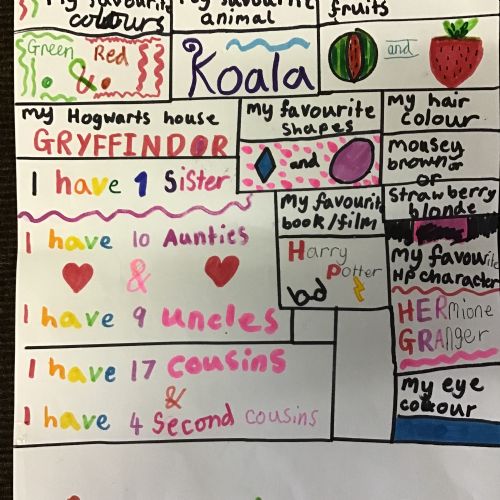 My favourite
colours
Green & Red
My favourite
animal
Koala
fruits
and
My Hogwarts house
GRYFFINDOR
I have 1 Sister
I have 10 Aunties
&
I have 9 uncles
I have 17 cousins
&
I have 4 Second cousins
My favourite
shapes
and
My favourite
book/film
Harry
Potter
My hair
colour
mousey
brown
or
Strawberry
blonde
My favourite
HP character
HERmione
GRAnger
My eye
colour